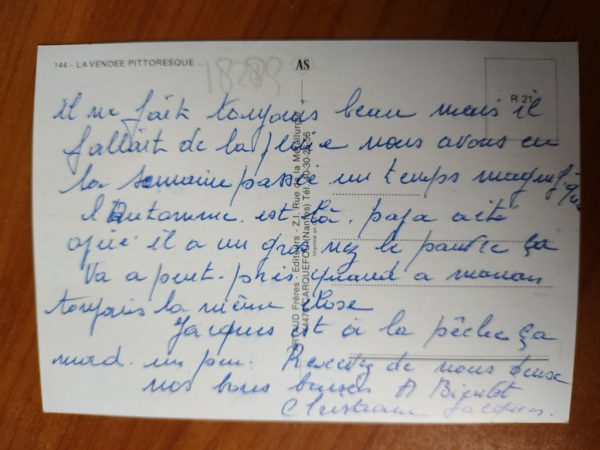 144 - LA VENDEE PITTORESQUE
18289
AS
R 21
Il ne fait toujours beau mais il
fallait de la pluie nous avons eu
la semaine passée un temps magnifique
l'Automne est là. papa a été
opéré il a un gros nez le pauvre ça
va a peut-près quand a maman
toujours la même chose
Jacques est à la pêche ça
mord un peu. Recevez de nous deux
nos bons baisers A Bientot
Christiane Jacques.
ARTAUD Frères - Editeurs - Z.I. Rue de la Métallurgie
44470 CARQUEFOU (Nantes) Tél.